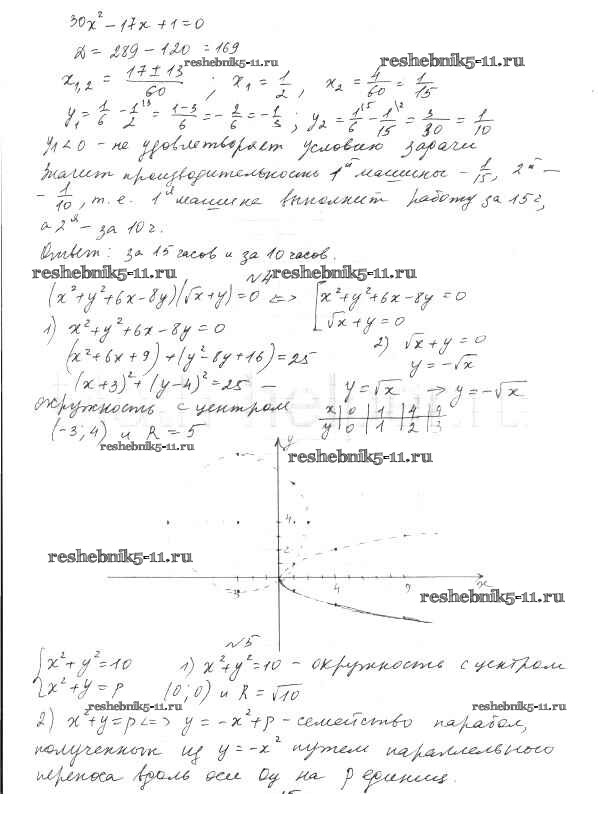 30x² − 17x + 1 = 0
D = 289 − 120 = 169
reshebnik5-11.ru
reshebnik5-11.ru
x₁,₂ = (17 ± 13)/60 ; x₁ = 1/2 , x₂ = 4/60 = 1/15
y₁ = 1/6 − 1/2 = (1−3)/6 = −2/6 = −1/3 ; y₂ = 1/6 − 1/15 = 3/30 = 1/10
y₁ < 0 – не удовлетворяет условию задачи
Значит производительность 1й машины – 1/15, 2й –
– 1/10, т.е. 1я машина выполнит работу за 15 ч,
а 2я – за 10 ч.
Ответ: за 15 часов и за 10 часов.
reshebnik5-11.ru
№4
reshebnik5-11.ru
(x² + y² + 6x − 8y)(√x + y) = 0 <=> [ x² + y² + 6x − 8y = 0
√x + y = 0
1) x² + y² + 6x − 8y = 0
2) √x + y = 0
(x² + 6x + 9) + (y² − 8y + 16) = 25
y = −√x
(x + 3)² + (y − 4)² = 25 –
y = √x → y = −√x
окружность с центром
x | 0 | 1 | 4 | 9
(−3; 4) и R = 5
y | 0 | 1 | 2 | 3
reshebnik5-11.ru
y
reshebnik5-11.ru
4
2
reshebnik5-11.ru
4
9
x
-3
reshebnik5-11.ru
№5
{ x² + y² = 10
x² + y = p
1) x² + y² = 10 – окружность с центром
(0; 0) и R = √10
reshebnik5-11.ru
reshebnik5-11.ru
2) x² + y = p <=> y = −x² + p – семейство парабол,
полученных из y = −x² путем параллельного
переноса вдоль оси Oy на p единиц.